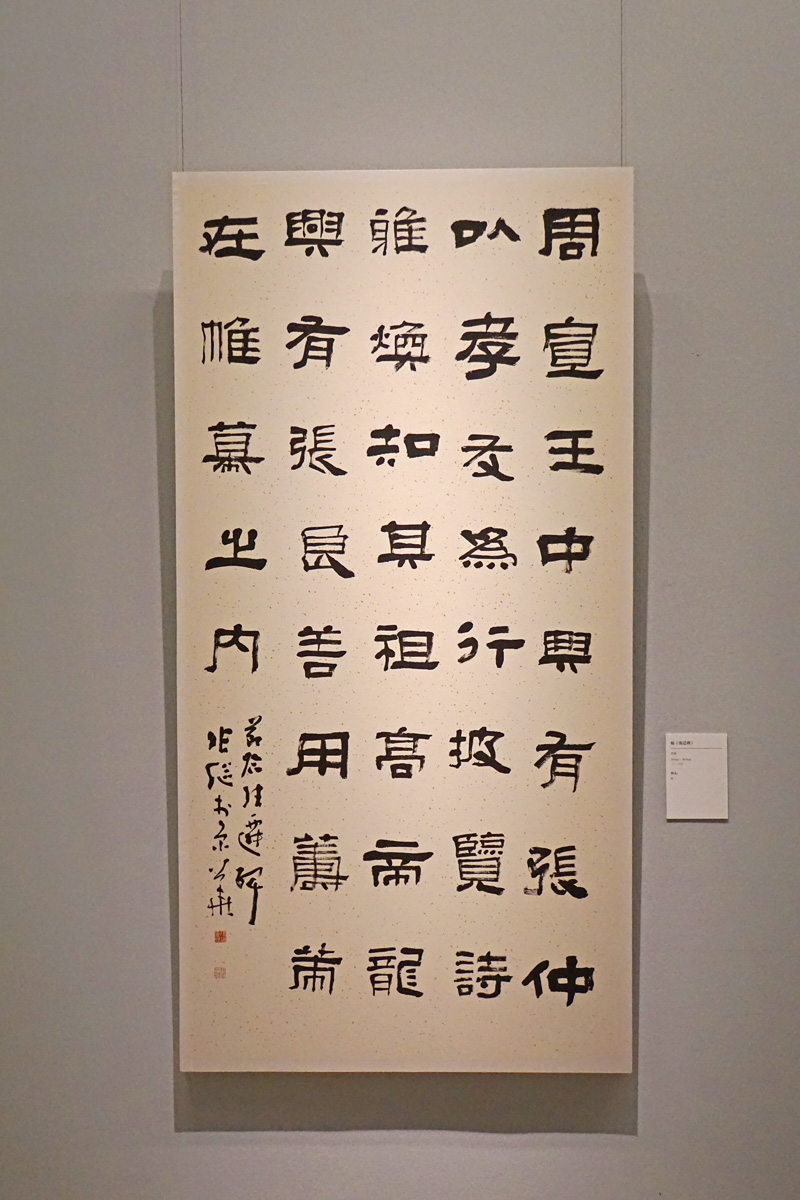 周宣王中興有張仲
㕥孝友為行披覽詩
雅煥知其祖高帝龍
興有張良善用籌策
在帷幕之内
節臨張遷碑